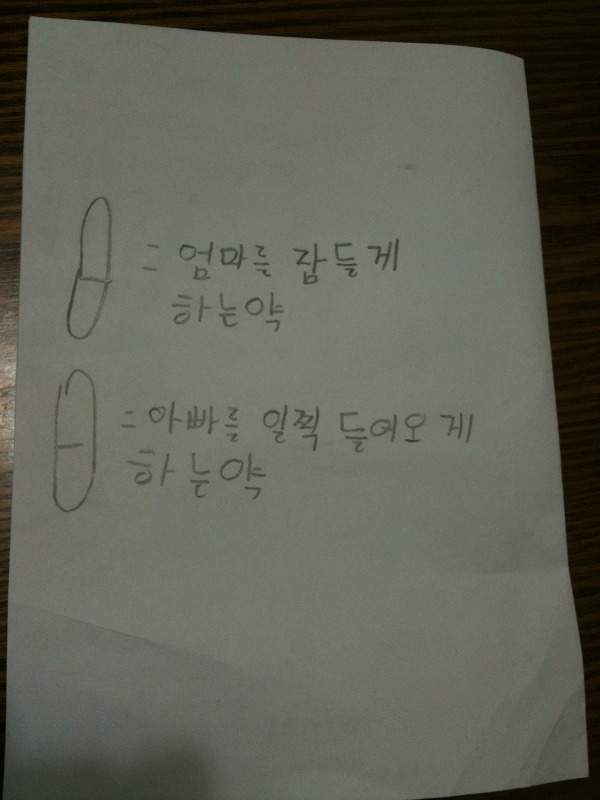 = 엄마를 잠들게
하는약
= 아빠를 일찍 들어오게
하는약